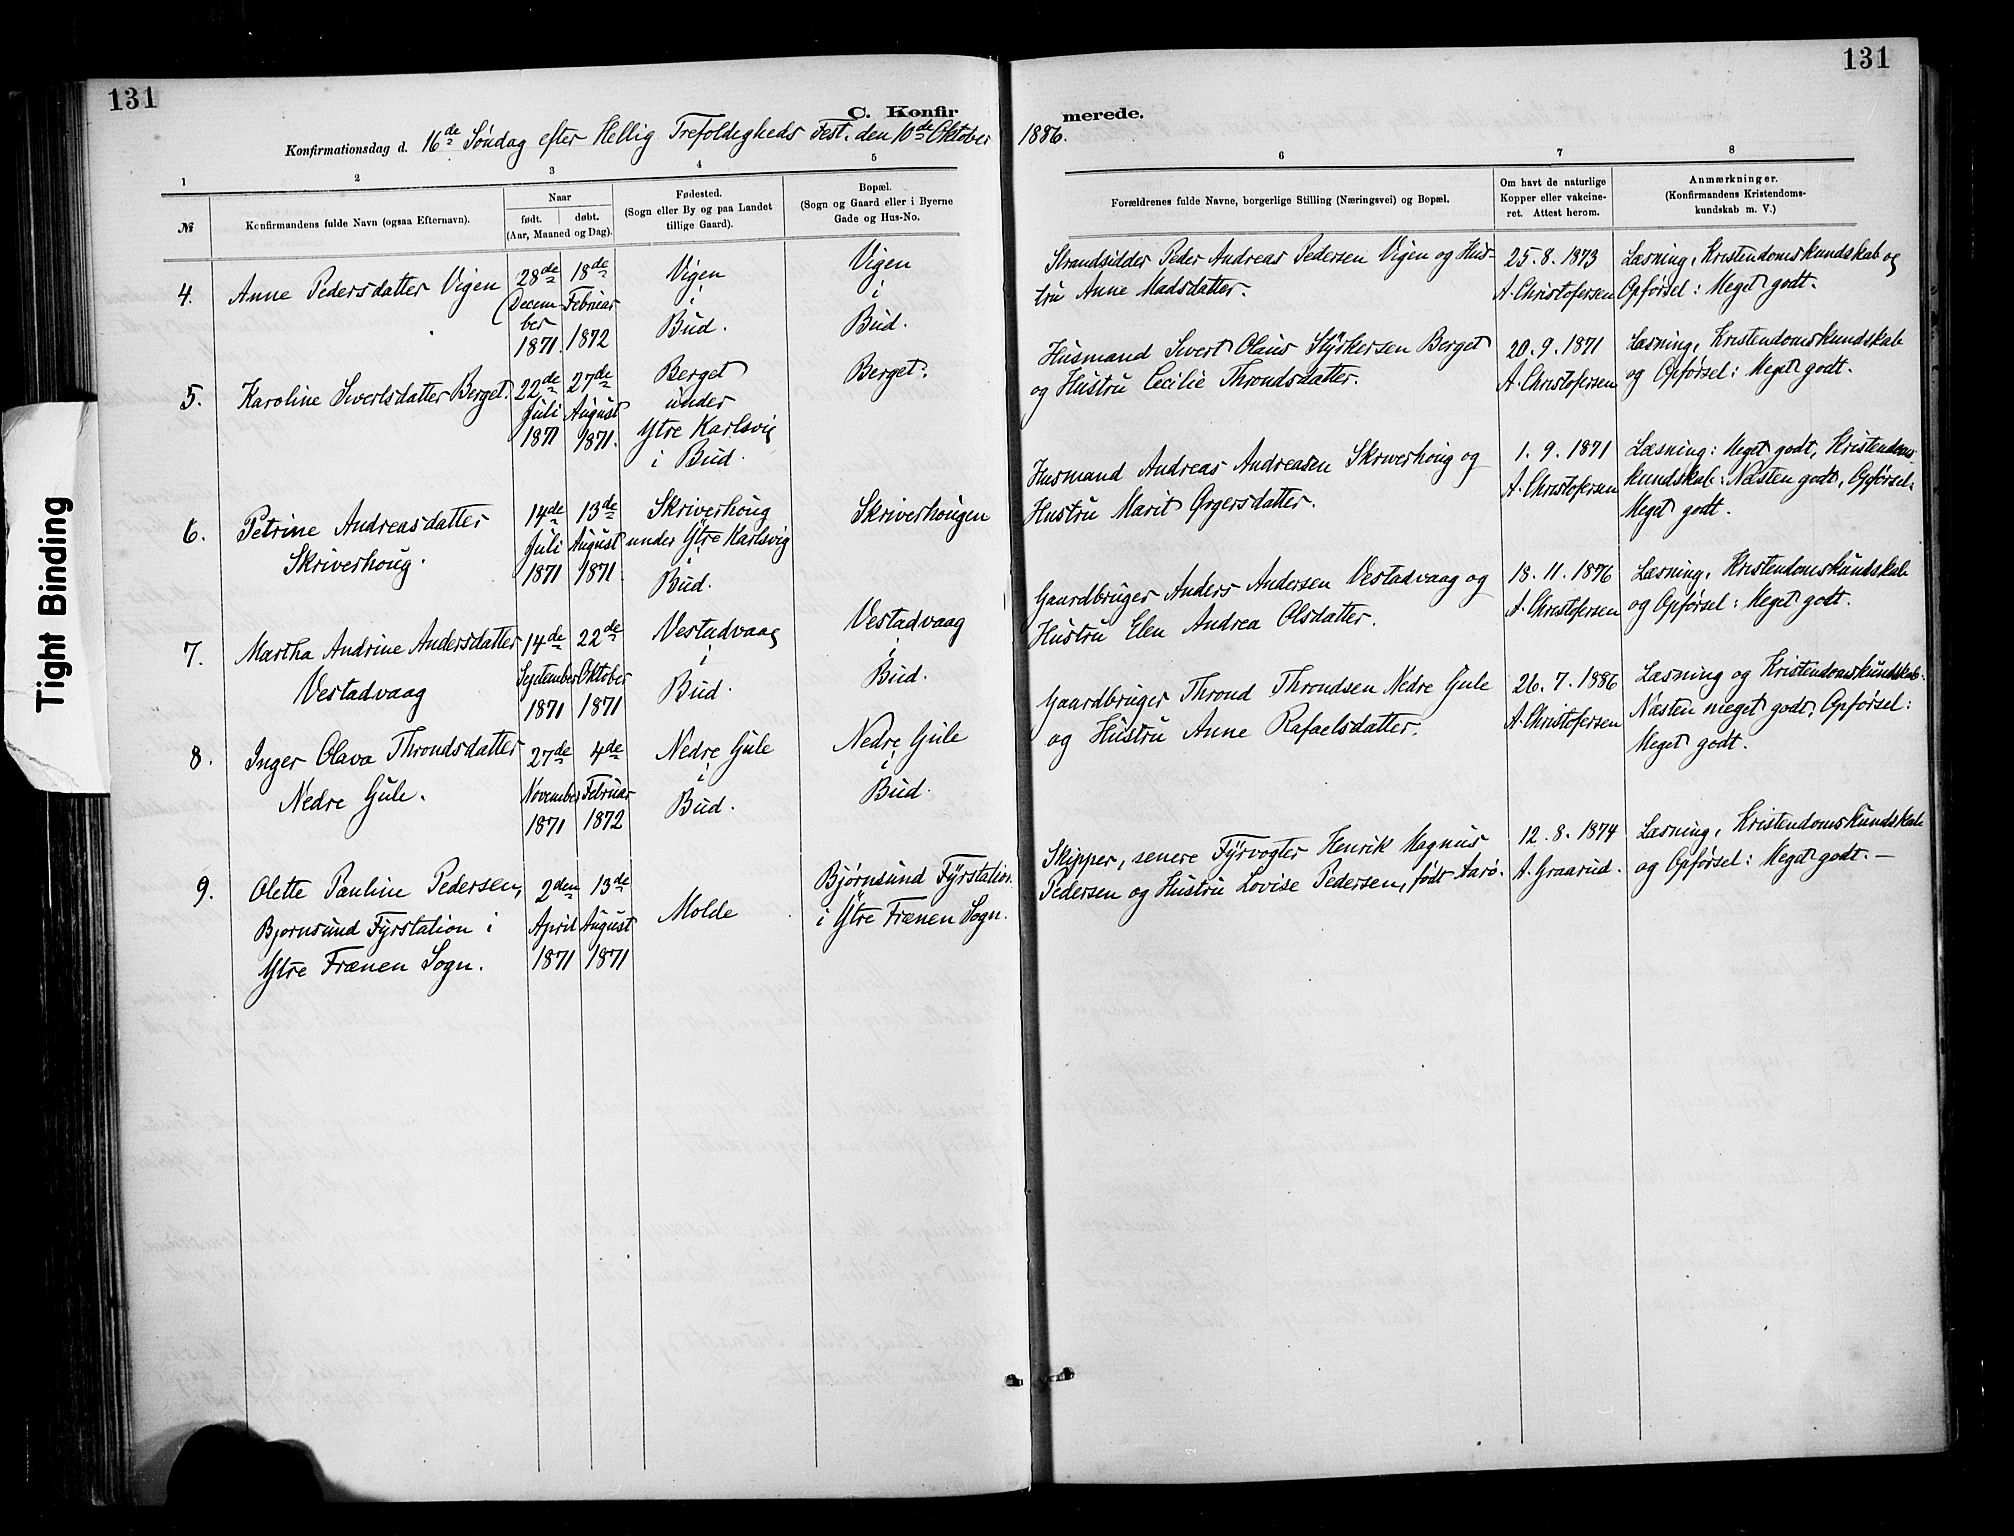 131
131
C. Konfir
merede.
Konfirmationsdag d. 16de Søndag efter Hellig Trefoldigheds Fest. den 10de Oktober 1886.
1 2 3 4 5 6 7 8
№
Konfirmandens fulde Navn (ogsaa Efternavn).
Naar
født. døbt.
(Aar, Maaned og Dag).
Fødested.
(Sogn eller By og paa Landet
tillige Gaard).
Bopæl.
(Sogn og Gaard eller i Byerne
Gade og Hus-No.
Forældrenes fulde Navne, borgerlige Stilling (Næringsvei) og Bopæl.
Om havt de naturlige
Kopper eller vakcine-
ret. Attest herom.
Anmærkninger.
(Konfirmandens Kristendoms-
kundskab m. V.)
4.
Anne Pedersdatter Vigen
28de
Decem-
ber
1871.
18de
Februar
1872
Vigen
i
Bud.
Vigen
i
Bud.
Strandsidder Peder Andreas Pedersen Vigen og Hus-
tru Anne Madsdatter.
25. 8. 1873
A. Christofersen
Læsning, Kristendomskundskab og
Opførsel: Meget godt.
5.
Karoline Sivertsdatter Berget.
22de
Juli
1871
27de
August
1871.
Berget
under
Ytre Karlsvig
i Bud.
Berget.
Husmand Sivert Olaus Styrkersen Berget
og Hustru Cecilie Throndsdatter.
20. 9. 1871
A. Christofersen
Læsning, Kristendomskundskab
og Opførsel: Meget godt.
6.
Petrine Andreasdatter
Skriverhoug.
14de
Juli
1871
13de
August
1871.
Skriverhoug
under Ytre Karlsvig
i
Bud.
Skriverhougen
Husmand Andreas Andreasen Skriverhoug og
Hustru Marit datter.
1. 9. 1871
A. Christofersen
Læsning: Meget godt, Kristendoms
kundskab: Næsten godt, Opførsel:
Meget godt.
7.
Martha Andrine Andersdatter
Vestadvaag
14de
September
1871
22de
Oktober
1871
Vestadvaag
i
Bud.
Vestadvaag
i
Bud.
Gaardbruger Anders Andersen Vestadvaag og
Hustru Elen Andrea Olsdatter.
18. 11. 1876
A. Christofersen
Læsning, Kristendomskundskab
og Opførsel: Meget godt.
8.
Inger Olava Throndsdatter
Nedre Gule.
27de
November
1871
4de
Februar
1872
Nedre Gule
i
Bud.
Nedre Gule
i
Bud.
Gaardbruger Thrond Throndsen Nedre Gule
og Hustru Anne Rafaelsdatter.
26. 7. 1886
A. Christofersen
Læsning og Kristendomskundskab:
Næsten meget godt, Opførsel:
Meget godt.
9.
Olette Pauline Pedersen,
Bjørnsund Fyrstation i
Ytre Frænen Sogn.
2den
April
1871
13de
August
1871
Molde
Bjørnsund Fyrstation
i Ytre Frænen Sogn.
Skipper, senere Fyrvogter Henrik Magnus
Pedersen og Hustru Lovise Pedersen, født Aarø.
12. 8. 1874
A. Graarud.
Læsning, Kristendomskundskab
og Opførsel: Meget godt. —
Tight Binding